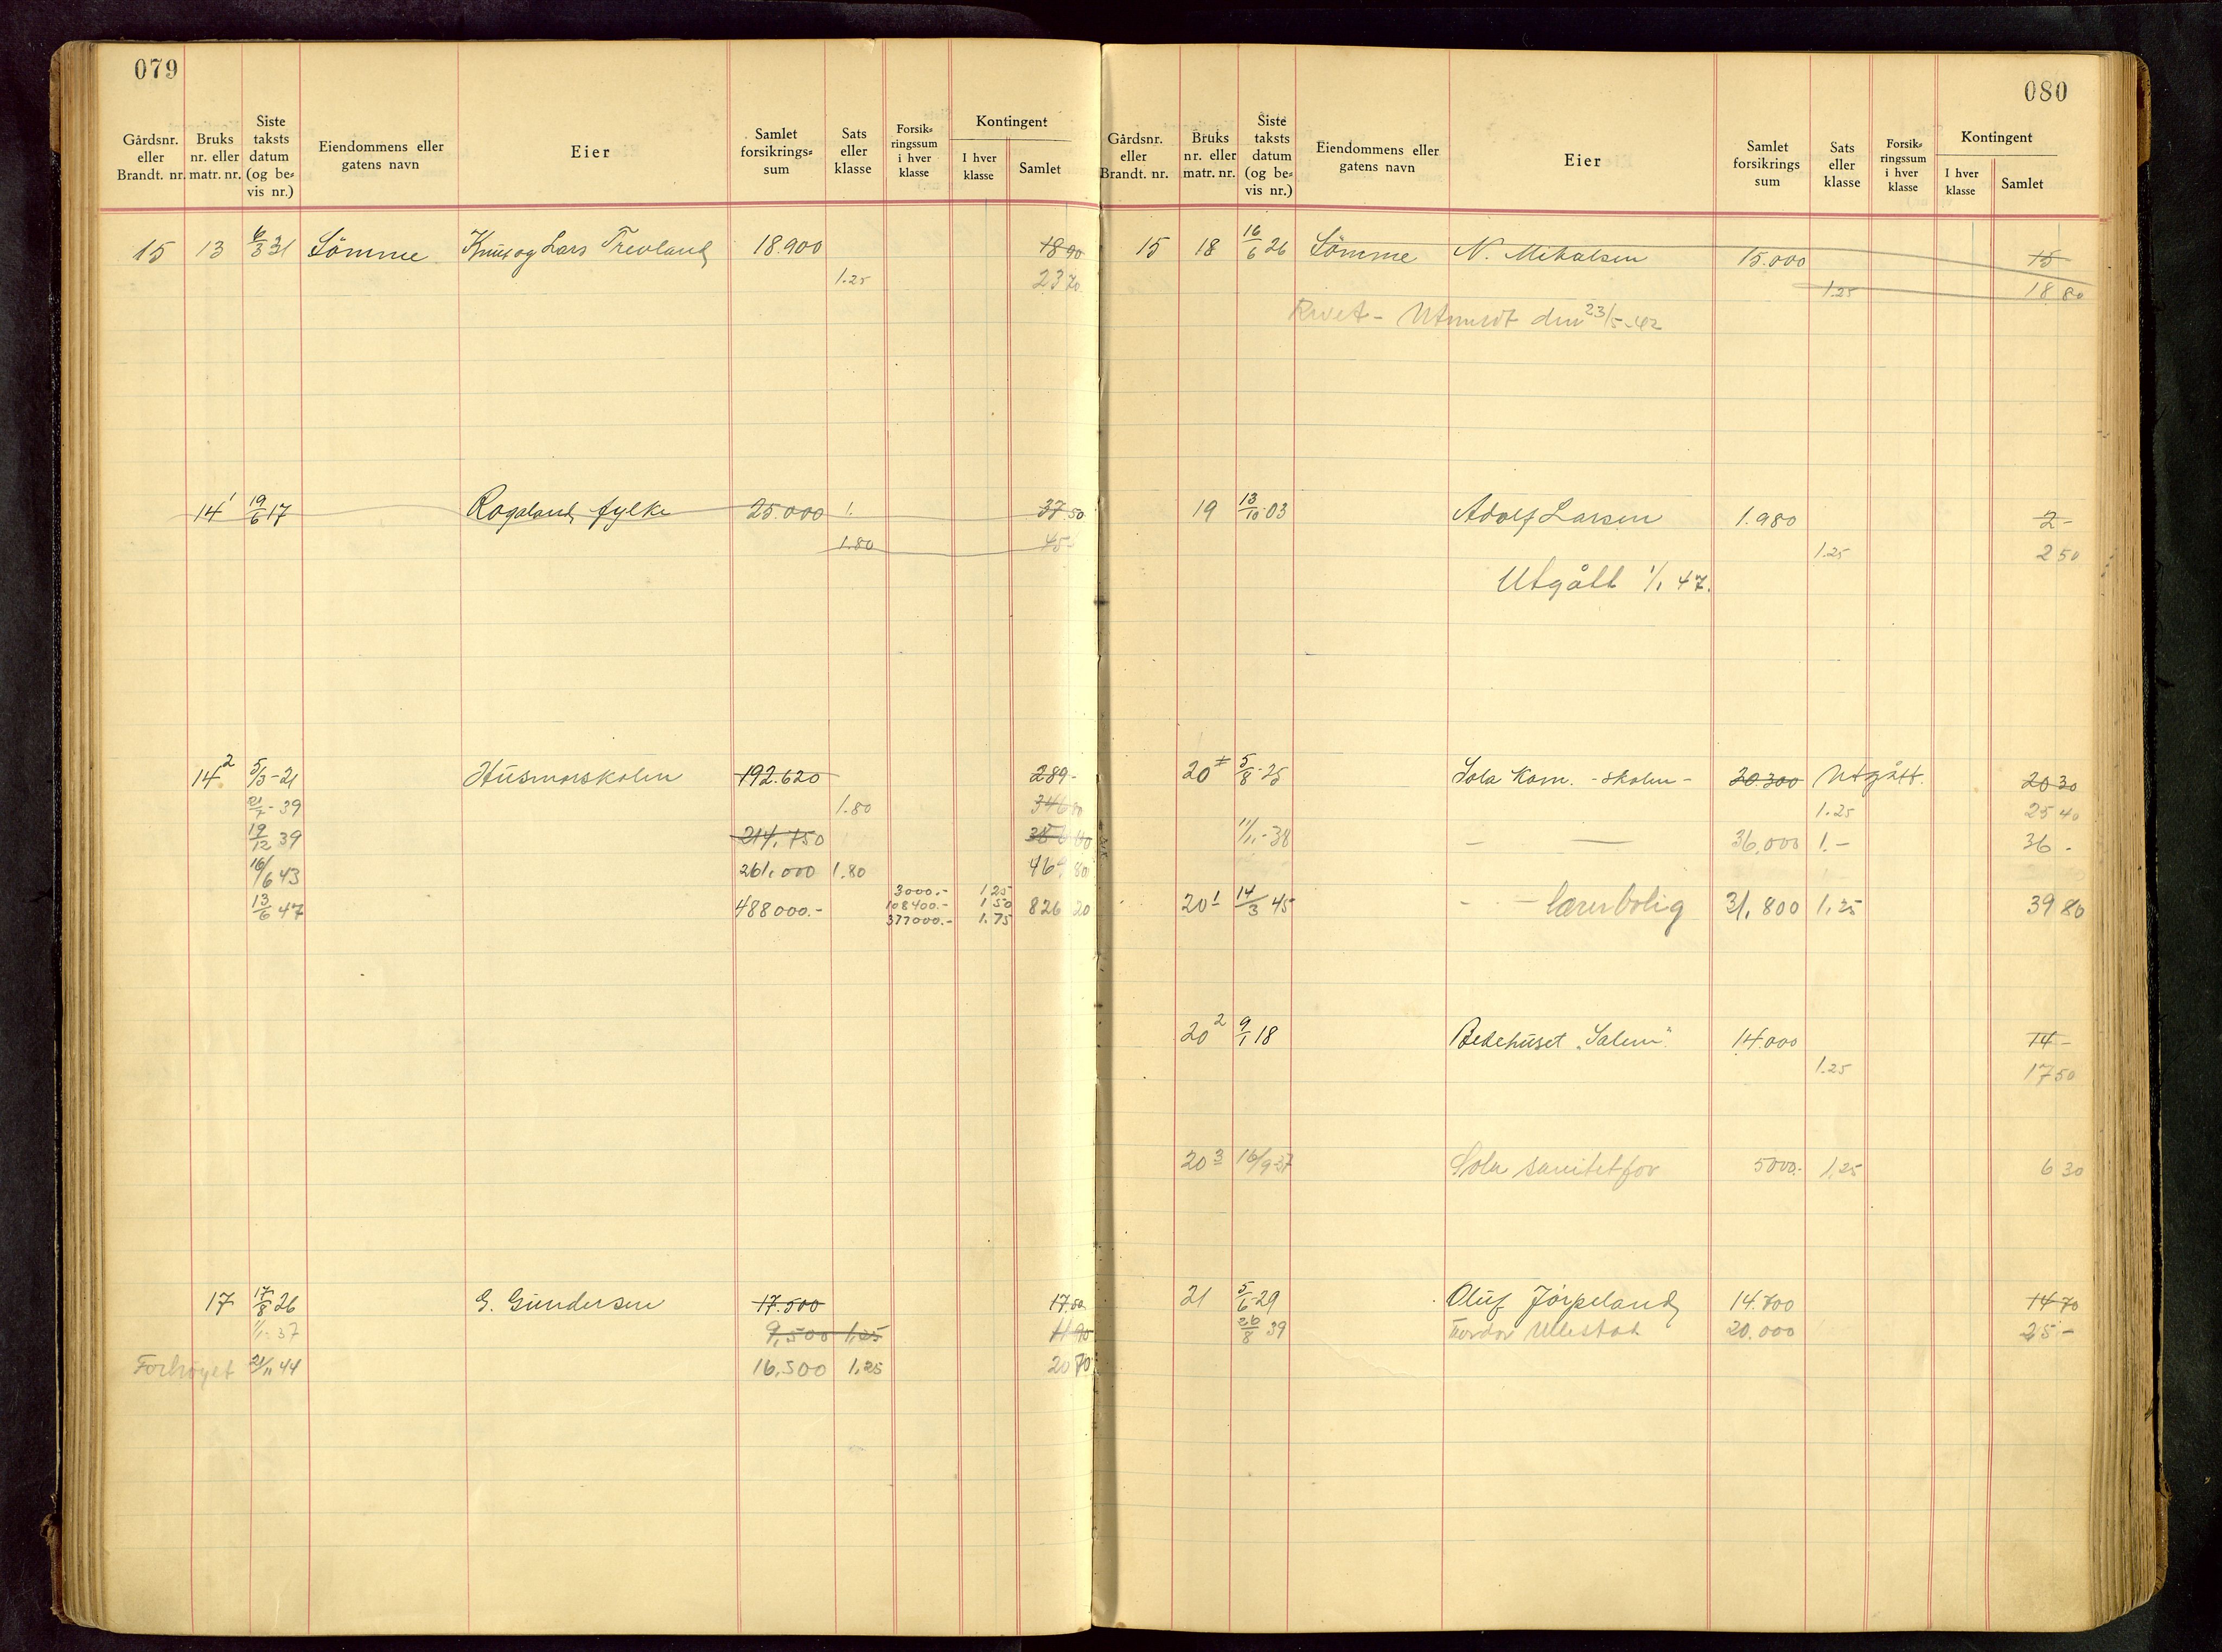 079
Gårdsnr. eller Brandt. nr. Bruks nr. eller matr. nr. Siste taksts datum (og be- vis nr.) Eiendommens eller gatens navn Eier Samlet forsikrings- sum Sats eller klasse Forsik- ringssum i hver klasse Kontingent I hver klasse Samlet
15 13 6/3 31 Sömme Knut og Lars Trevland 18.900 18 90
1.25 23 70
14 1 19/6 17 Rogaland fylke 25.000 1. 37.50
1.80 45-
14 2 5/3-21 Husmorskolen 192.620 289-
21/7-39 1.80 346 80
19/12 39 214,750
16/6 43 261,000 1.80 469 80
13/6 47 488000.- 826 20
3000.- 1 25
108400.- 1 50
377000.- 1.75
17 17/8 26 G. Gundersen 17.500 17.50
1/1-37 9,500 1,25 11 90
Forhøyet 21/11 44 16,500 1,25 20 70
080
Gårdsnr. eller Brandt. nr. Bruks nr. eller matr. nr. Siste taksts datum (og be- vis nr.) Eiendommens eller gatens navn Eier Samlet forsikrings sum Sats eller klasse Forsik- ringssum i hver klasse Kontingent I hver klasse Samlet
15 18 16/6 26 Sömme N. Mikalsen 15.000 15
1.25 18 80
Rivet - Utmeldt den 23/5-42
19 13/10-03 Adolf Larsen 1.980 2-
1.25 2 50
Utgått 1/1 47.
20 1 5/8-25 Sola Kom. - skolen - 20.300 Utgått. 20 30
1.25 25 40
11/11-38 - - 36,000 1.- 36 -
20 1 14/3 45 - - lærerbolig 31,800 1,25 39 80
20 2 9/1 18 Bedehuset „Salem" 14.000 14-
1.25 17 50
20 3 16/9-37 Sola sanitetfor 5000.- 1,25 6 30
21 5/6-29 Oluf Jörpeland 14.700 14 70
26/8 39 Ullestad 20.000 25-